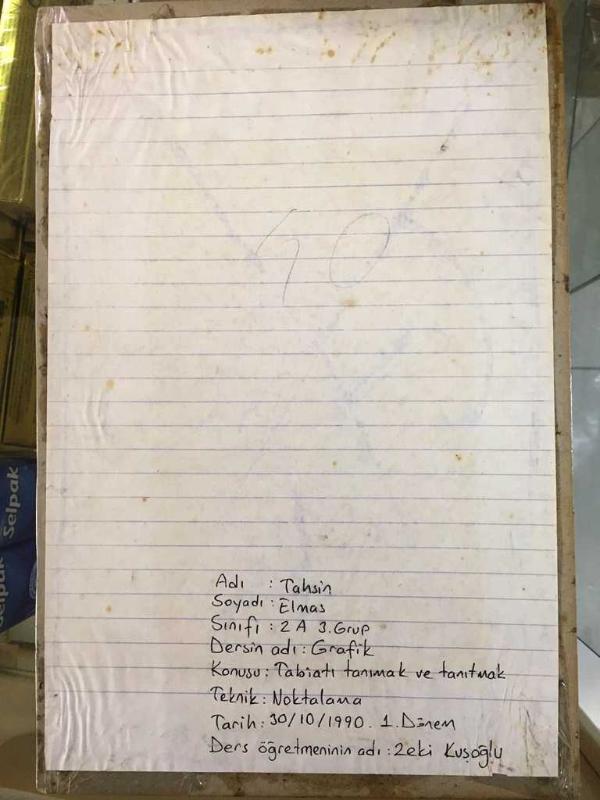 50
Adı : Tahsin
Soyadı : Elmas
Sınıfı : 2 A 3.Grup
Dersin adı : Grafik
Konusu : Tabiatı tanımak ve tanıtmak
Teknik : Noktalama
Tarih : 30/10/1990. 1.Dönem
Ders öğretmeninin adı : Zeki Kuşoğlu
Selpak
Selpak